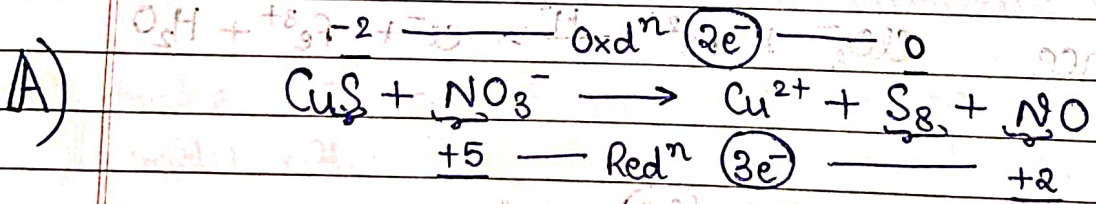 -2 —— Oxdⁿ (2e⁻) —— 0
A) CuS + NO₃⁻ ⟶ Cu²⁺ + S₈ + NO
+5 — Redⁿ (3e⁻) —— +2